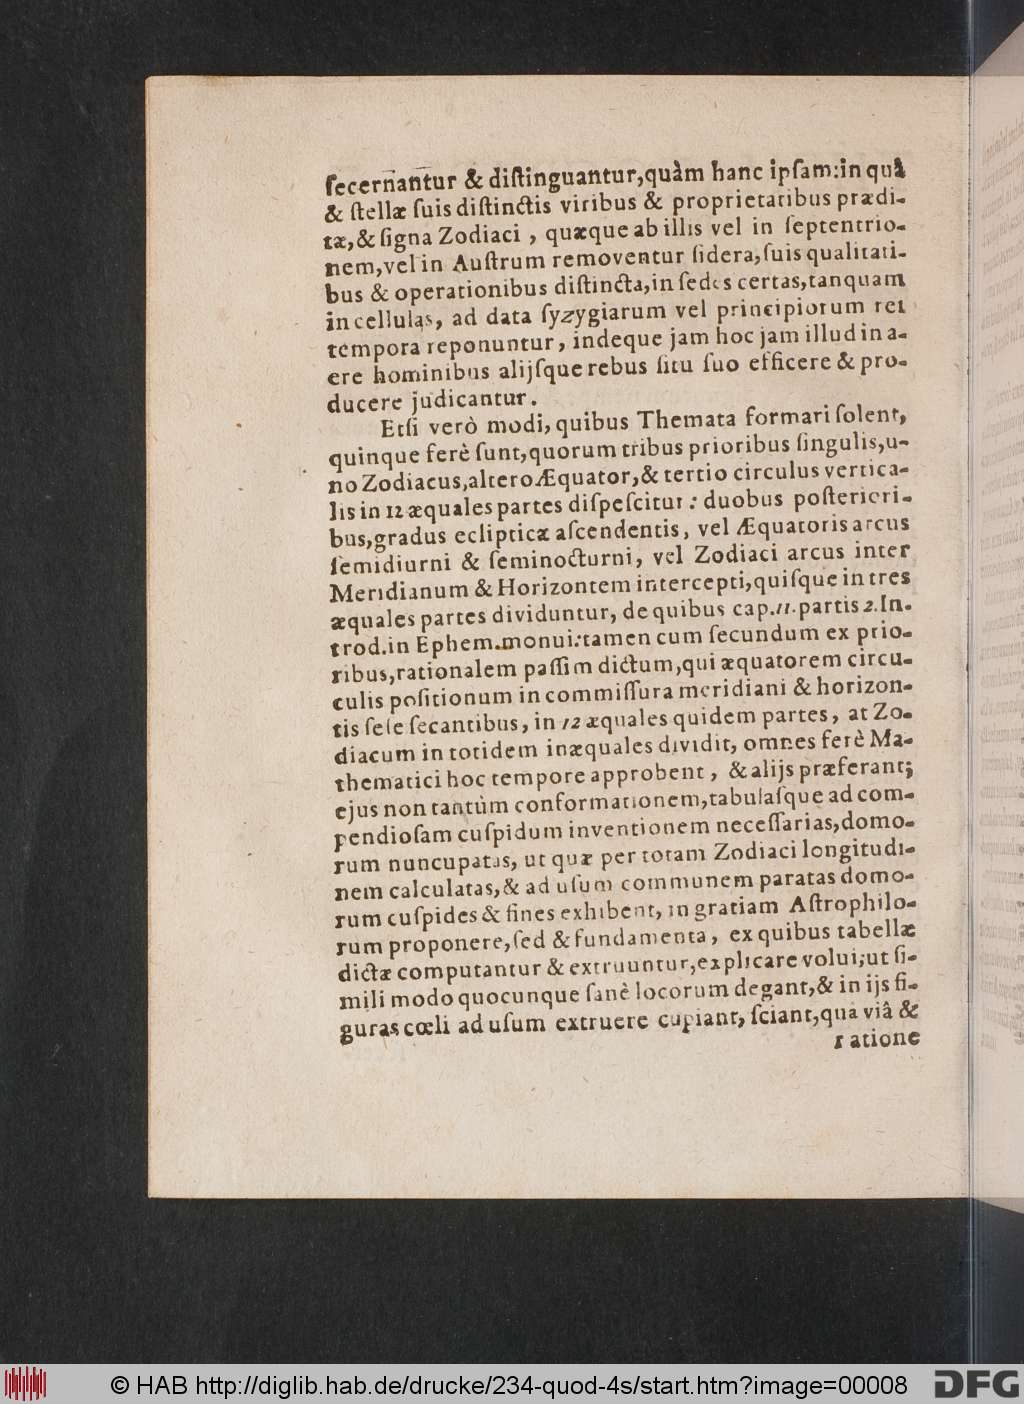 ſecernantur & diſtinguantur,quàm hanc ipſam:in quâ
& ſtellæ ſuis diſtinctis viribus & proprietatibus prædi-
tæ,& ſigna Zodiaci , quæque ab illis vel in ſeptentrio-
nem,vel in Auſtrum removentur ſidera,ſuis qualitati-
bus & operationibus diſtincta,in ſedes certas,tanquam
in cellulas, ad data ſyzygiarum vel principiorum rei
tempora reponuntur, indeque jam hoc jam illud in a-
ere hominibus alijſque rebus ſitu ſuo efficere & pro-
ducere judicantur.
Etſi verò modi, quibus Themata formari ſolent,
quinque ferè ſunt,quorum tribus prioribus ſingulis,u-
no Zodiacus,altero Æquator,& tertio circulus vertica-
lis in 12 æquales partes diſpeſcitur: duobus poſteriori-
bus,gradus eclipticæ aſcendentis, vel Æquatoris arcus
ſemidiurni & ſeminocturni, vel Zodiaci arcus inter
Meridianum & Horizontem intercepti,quiſque in tres
æquales partes dividuntur, de quibus cap.11.partis 2.In-
trod.in Ephem.monui:tamen cum ſecundum ex prio-
ribus,rationalem paſſim dictum,qui æquatorem circu-
culis poſitionum in commiſſura meridiani & horizon-
tis ſeſe ſecantibus, in 12 æquales quidem partes, at Zo-
diacum in totidem inæquales dividit, omnes ferè Ma-
thematici hoc tempore approbent, & alijs præferant;
ejus non tantùm conformationem,tabulaſque ad com-
pendioſam cuſpidum inventionem neceſſarias,domo-
rum nuncupatas, ut quæ per totam Zodiaci longitudi-
nem calculatas,& ad uſum communem paratas domo-
rum cuſpides & fines exhibent, in gratiam Aſtrophilo-
rum proponere,ſed & fundamenta, ex quibus tabellæ
dictæ computantur & extruuntur,explicare volui;ut ſi-
mili modo quocunque ſanè locorum degant,& in ijs fi-
guras cœli ad uſum extruere cupiant, ſciant,quâ viâ &
ratione
© HAB http://diglib.hab.de/drucke/234-quod-4s/start.htm?image=00008
DFG